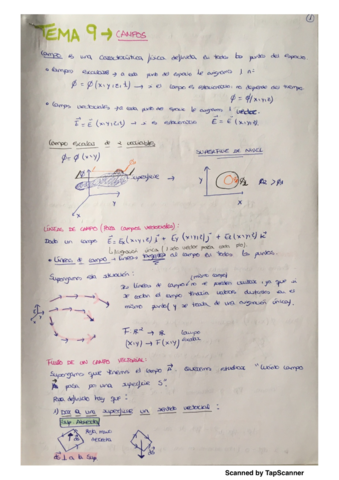 1
TEMA 9 → CAMPOS
Campo es una característica física definida en todos los puntos del espacio
• Campos escalares → a cada punto del espacio le asignamos 1 nº:
ϕ = ϕ (x,y,z,t) → si lo campo es estacionario, no depende del tiempo
ϕ = ϕ(x,y,z)
• Campos vectoriales para cada punto del espacio le asigno 1 vector.
E = E (x,y,z,t) → si es estacionario E = E (x,y,z)
Campo escalar de 2 variables
SUPERFICIE DE NIVEL
ϕ = ϕ (x,y)
superficie →
Y
X
LÍNEAS DE CAMPO (Para campos vectoriales):
Dado un campo E = Ex(x,y,z,t) i + Ey (x,y,z,t) j + Ez (x,y,z,t) k
• Líneas de campo → líneas tangentes al campo en todos los puntos.
Supongamos esta situación:
las líneas de campo no se pueden cortar, ya que si
se cortan el campo tendría valores distintos en el
mismo punto (y se trata de una asignación única).
campo
(x,y) → F(x,y)
FLUJO DE UN CAMPO VECTORIAL:
Supongamos que tenemos el campo a. Queremos estudiar "cuánto campo
a pasa por una superficie S".
Para definirlo hay que:
1) Dar a una superficie un sentido vectorial:
Sup. Abierta
ds
Scanned by TapScanner